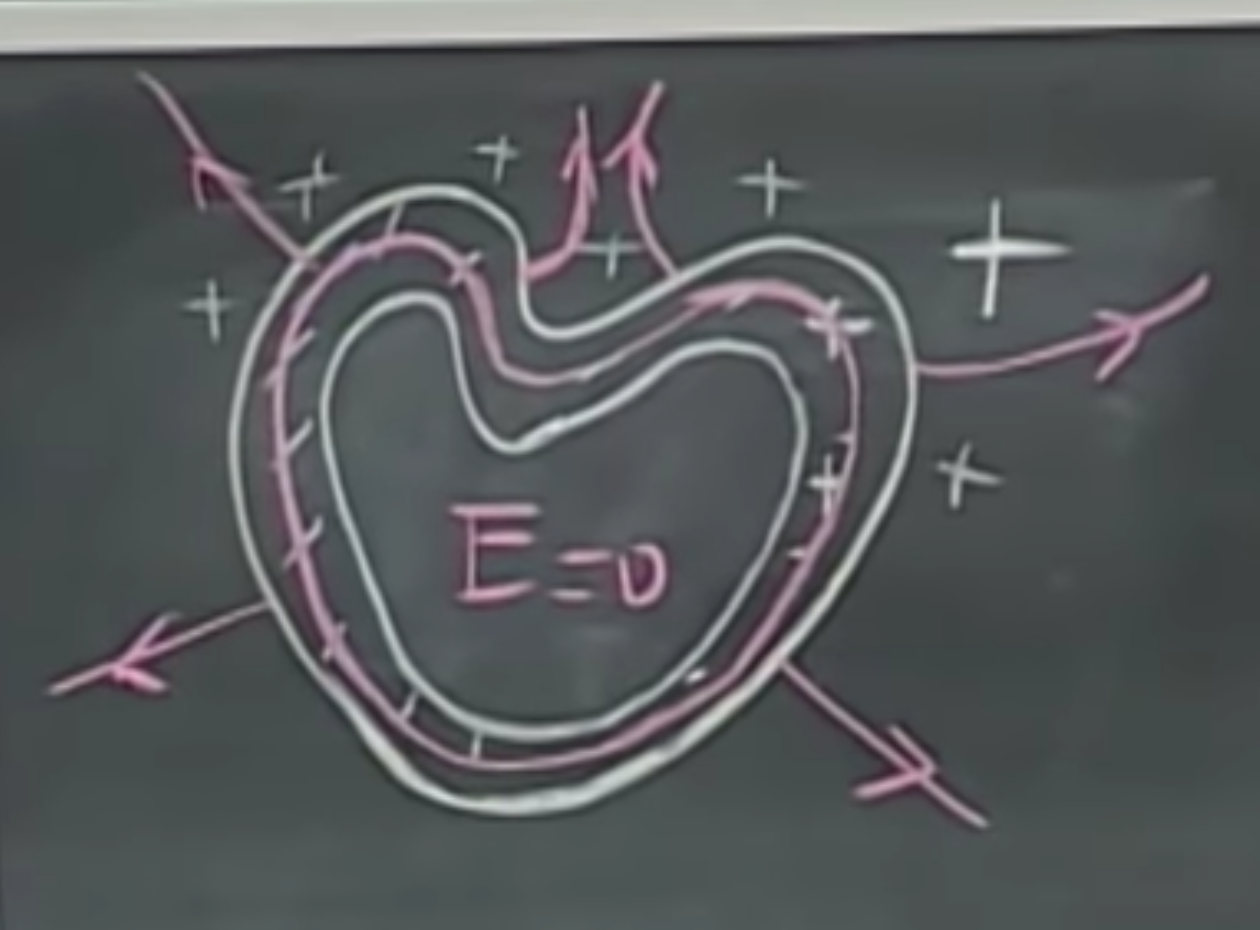 + + +
+ + +
+ +
E = 0
+ +